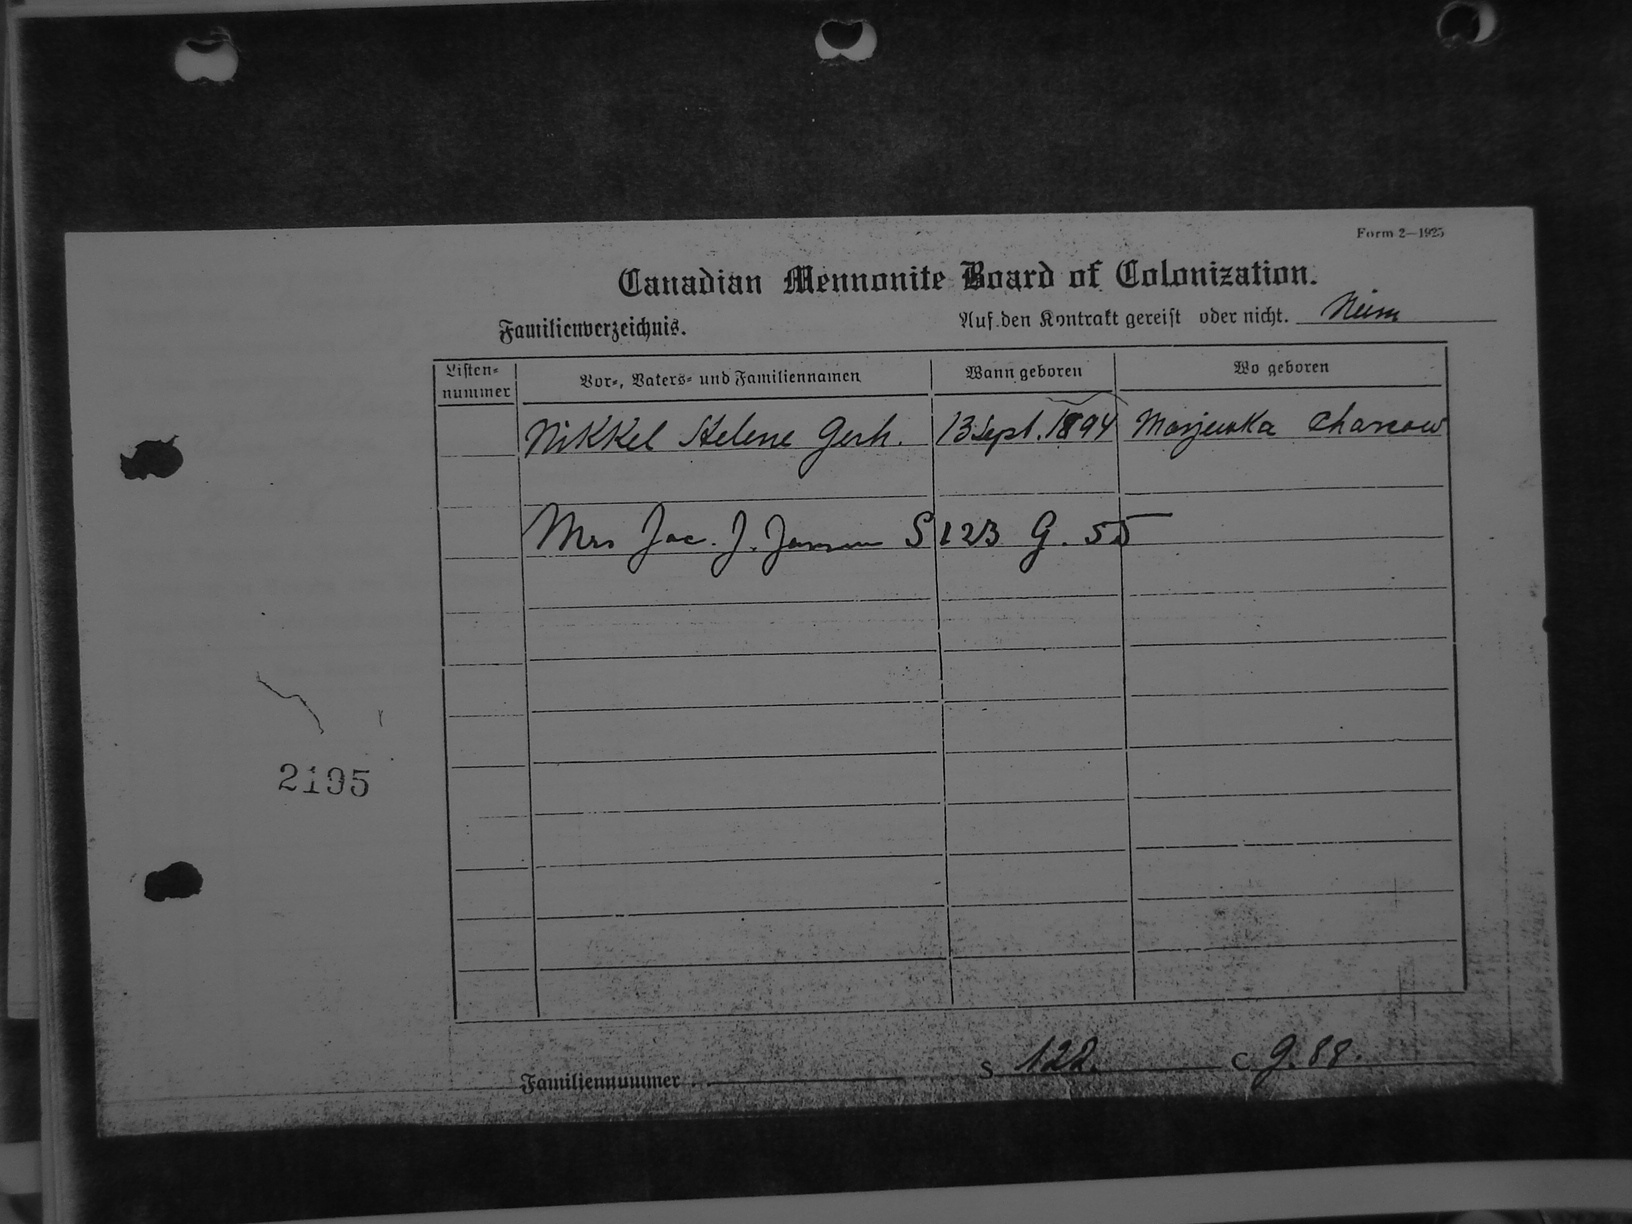 Form 2—1925
Canadian Mennonite Board of Colonization.
Familienverzeichnis.
Auf den Kontrakt gereist oder nicht. Nein
Listen-
nummer
Vor-, Vaters- und Familiennamen
Wann geboren
Wo geboren
Nikkel Helene Gerh. 13 Sept. 1894 Marjewka Charcow
Mrs Jac. J. Janzen S 123 G. 55
2195
Familiennummer
S 122. C G. 88.